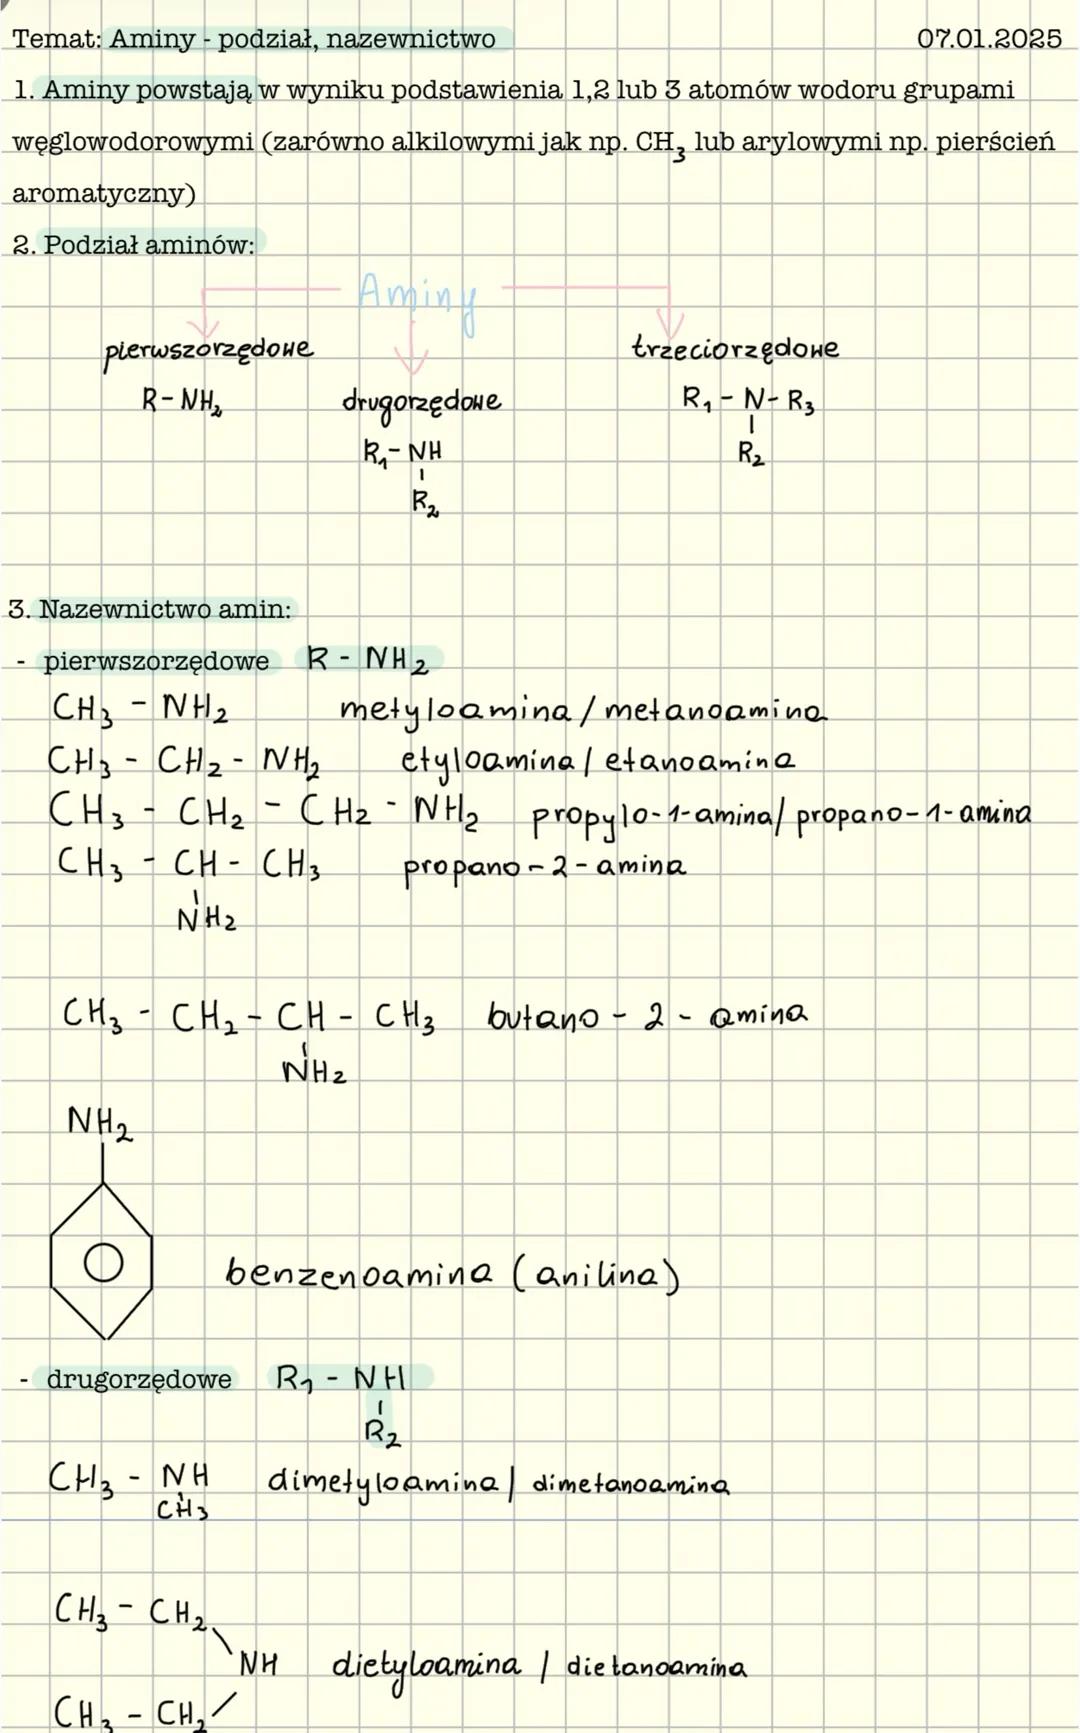 Temat: Aminy - podział, nazewnictwo 07.01.2025
1. Aminy powstają w wyniku podstawienia 1,2 lub 3 atomów wodoru grupami
węglowodorowymi (zarówno alkilowymi jak np. CH₃ lub arylowymi np. pierścień
aromatyczny)
2. Podział aminów:
Aminy
pierwszorzędowe
R-NH₂
drugorzędowe
R₁-NH
R₂
trzeciorzędowe
R₁-N-R₃
R₂
3. Nazewnictwo amin:
- pierwszorzędowe R-NH₂
CH₃-NH₂ metyloamina/metanoamina
CH₃-CH₂-NH₂ etyloamina/etanoamina
CH₃-CH₂-CH₂-NH₂ propylo-1-amina/propano-1-amina
CH₃-CH-CH₃ propano-2-amina
NH₂
CH₃-CH₂-CH-CH₃ butano-2-amina
NH₂
NH₂
benzenoamina (anilina)
- drugorzędowe R₁-NH
R₂
CH₃-NH dimetyloamina/dimetanoamina
CH₃
CH₃-CH₂
NH dietyloamina/dietanoamina
CH₃-CH₂